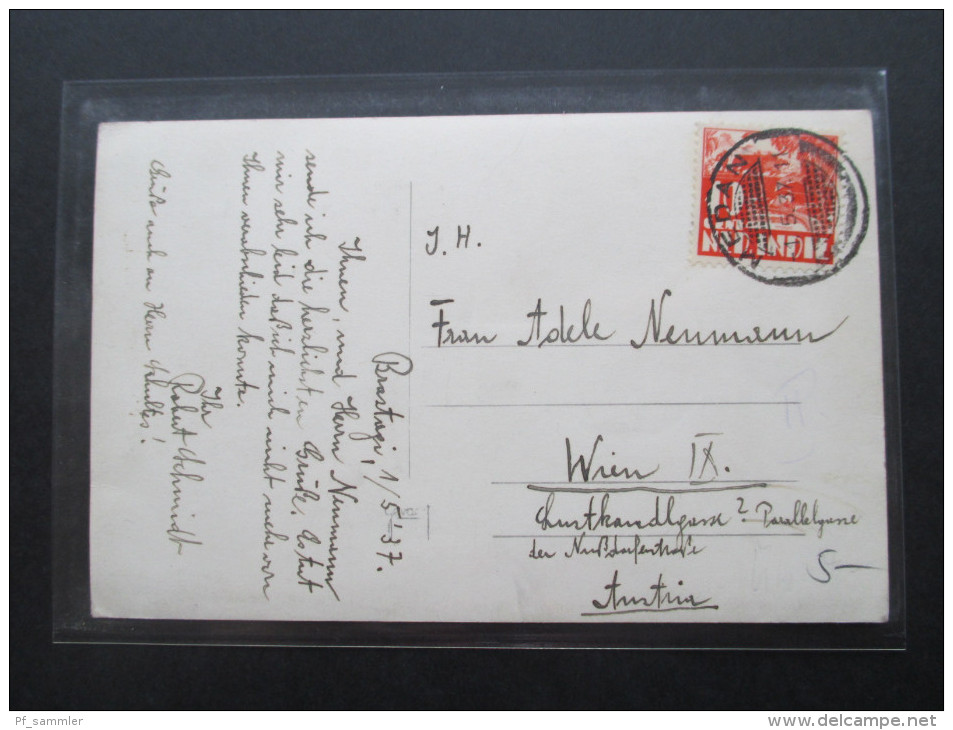 Brastagi, 1/5'37.
Ihnen, und Herrn Neumann
sende ich die herzlichsten Grüße. Es tut
mir sehr leid daß ich mich nicht mehr von
Ihnen verabschieden konnte.
Ihr
Robert Schmidt
Grüße auch an Herrn Schultes!
I. H.
Frau Adele Neumann
Wien IX.
Lustkandlgasse ? Parallelgasse
der Nußdorferstraße
Austria
5-
MEDAN
1.5.37.11
NED INDIE
Pf_sammler
www.delcampe.net